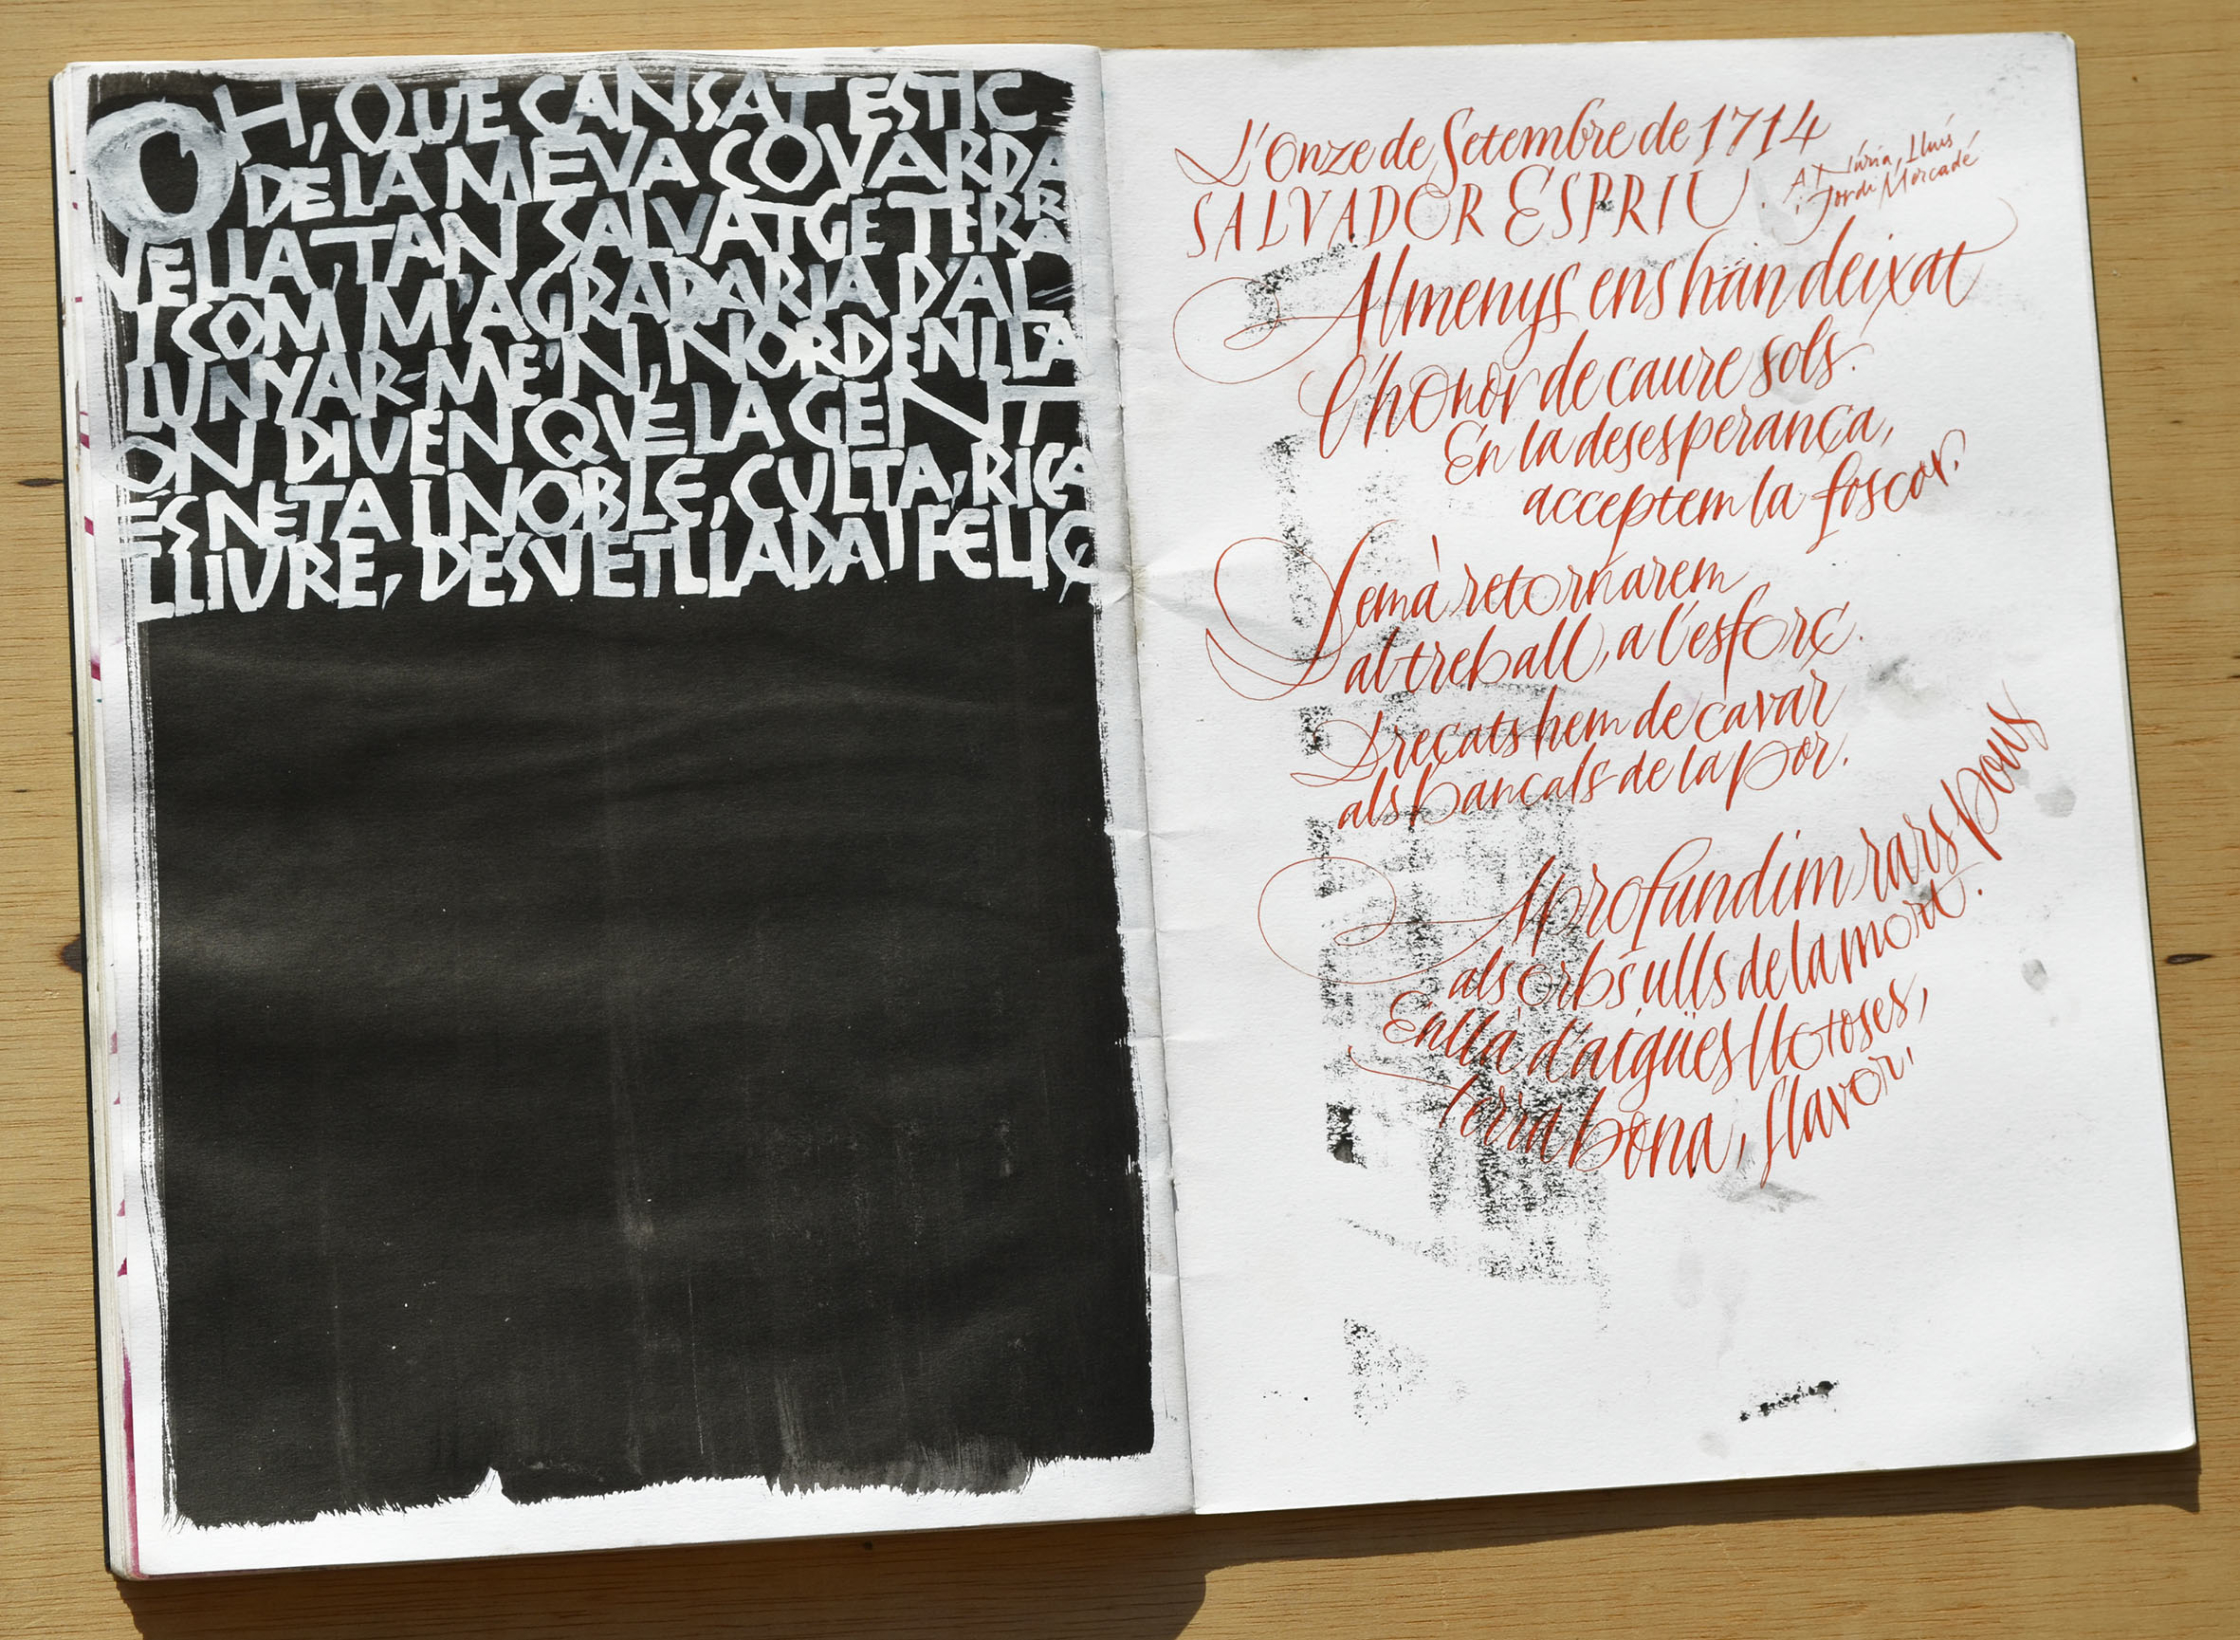 OH, QUE CANSAT ESTIC
DE LA MEVA COVARDA
VELLA, TAN SALVATGE TERRA
I COM M'AGRADARIA D'AL
LUNYAR-ME'N, NORD ENLLÀ
ON DIUEN QUE LA GENT
ÉS NETA I NOBLE, CULTA, RICA
LLIURE, DESVETLLADA I FELIÇ
L'Onze de Setembre de 1714
SALVADOR ESPRIU.
A Núria, Lluís
i Jordi Mercadé
Almenys ens han deixat
l'honor de caure sols.
En la desesperança,
acceptem la foscor.
Demà retornarem
al treball, a l'esforç.
Dreçats hem de cavar
als bancals de la por.
Aprofundim rars pous
als orbs ulls de la mort.
Enllà d'aigües llotoses,
terra bona, llavor.